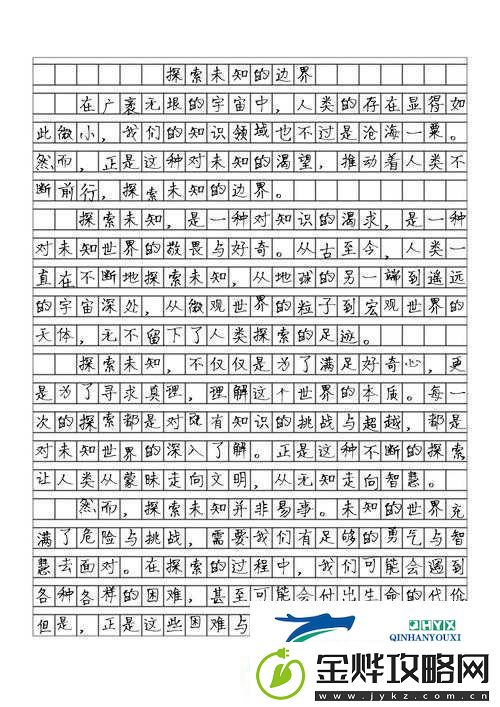 探索未知的边界
在广袤无垠的宇宙中，人类的存在显得如
此微小，我们的知识领域也不过是沧海一粟。
然而，正是这种对未知的渴望，推动着人类不
断前行，探索未知的边界。
探索未知，是一种对知识的渴求，是一种
对未知世界的敬畏与好奇。从古至今，人类一
直在不断地探索未知，从地球的另一端到遥远
的宇宙深处，从微观世界的粒子到宏观世界的
天体，无不留下了人类探索的足迹。
探索未知，不仅仅是为了满足好奇心，更
是为了寻求真理，理解这个世界的本质。每一
次的探索都是对既有知识的挑战与超越，都是
对未知世界的深入了解。正是这种不断的探索
让人类从蒙昧走向文明，从无知走向智慧。
然而，探索未知并非易事。未知的世界充
满了危险与挑战，需要我们有足够的勇气与智
慧去面对。在探索的过程中，我们可能会遇到
各种各样的困难，甚至可能会付出生命的代价
但是，正是这些困难与
JHYX
QINHANYOUXI
金烨攻略网
www.jykz.com.cn